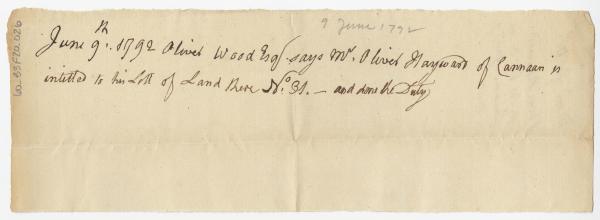 9 June 1792
June 9th. 1792 Oliver Wood Esqr. says Mr. Oliver Hayward of Cannaan is
intitled to his Lott of Land there No. 31. — and done the Duty